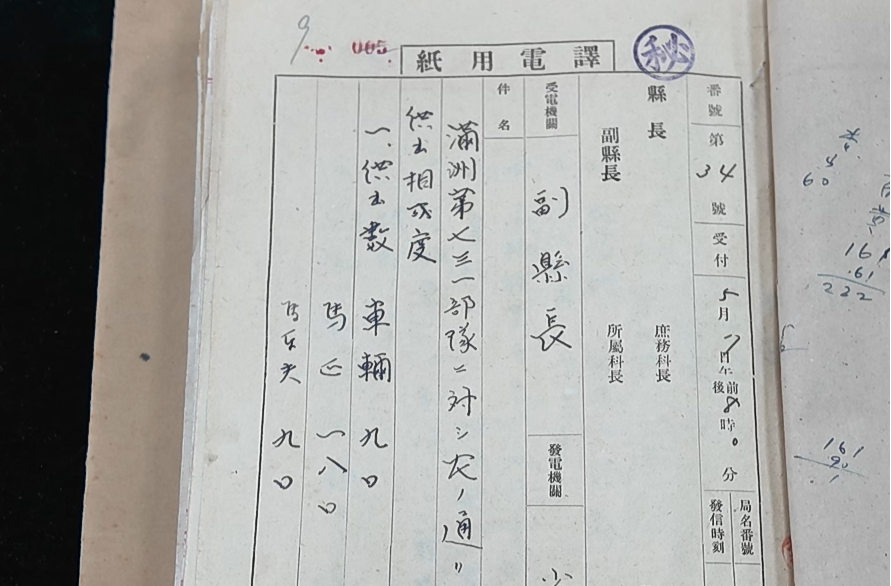 9
005
譯電用紙
秘
番號 第34號 受付 5月7日午前後8時0分
局名番號
發信時刻
縣長 庶務科長
副縣長 所屬科長
受電機關 副縣長 發電機關
件名
滿洲第七三一部隊ニ対シ左ノ通リ
供出相成度
一、供出数 車輛 九〇
馬匹 一八〇
馬伕 九〇
161
61
222
161